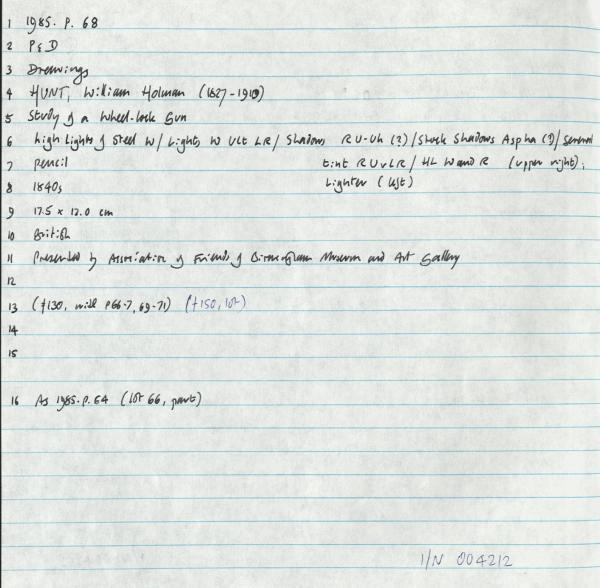 1 1985. P. 68
2 P & D
3 Drawings
4 HUNT, William Holman (1827-1910)
5 Study of a Wheel-lock Gun
6 high Lights of Steel W/ Lights W ULt LR/ Shadows RU-Uh (?)/Stock Shadows Aspha (?)/ General
7 pencil tint RUvLR/ HL W and R (upper right);
8 1840s Lighter (left)
9 17.5 x 12.0 cm
10 British
11 Presented by Association of Friends of Birmingham Museum and Art Gallery
12
13 (£130, with P66-7, 69-71) (£150, lot)
14
15
16 As 1985. P. 64 (lot 66, part)
I/N 004212